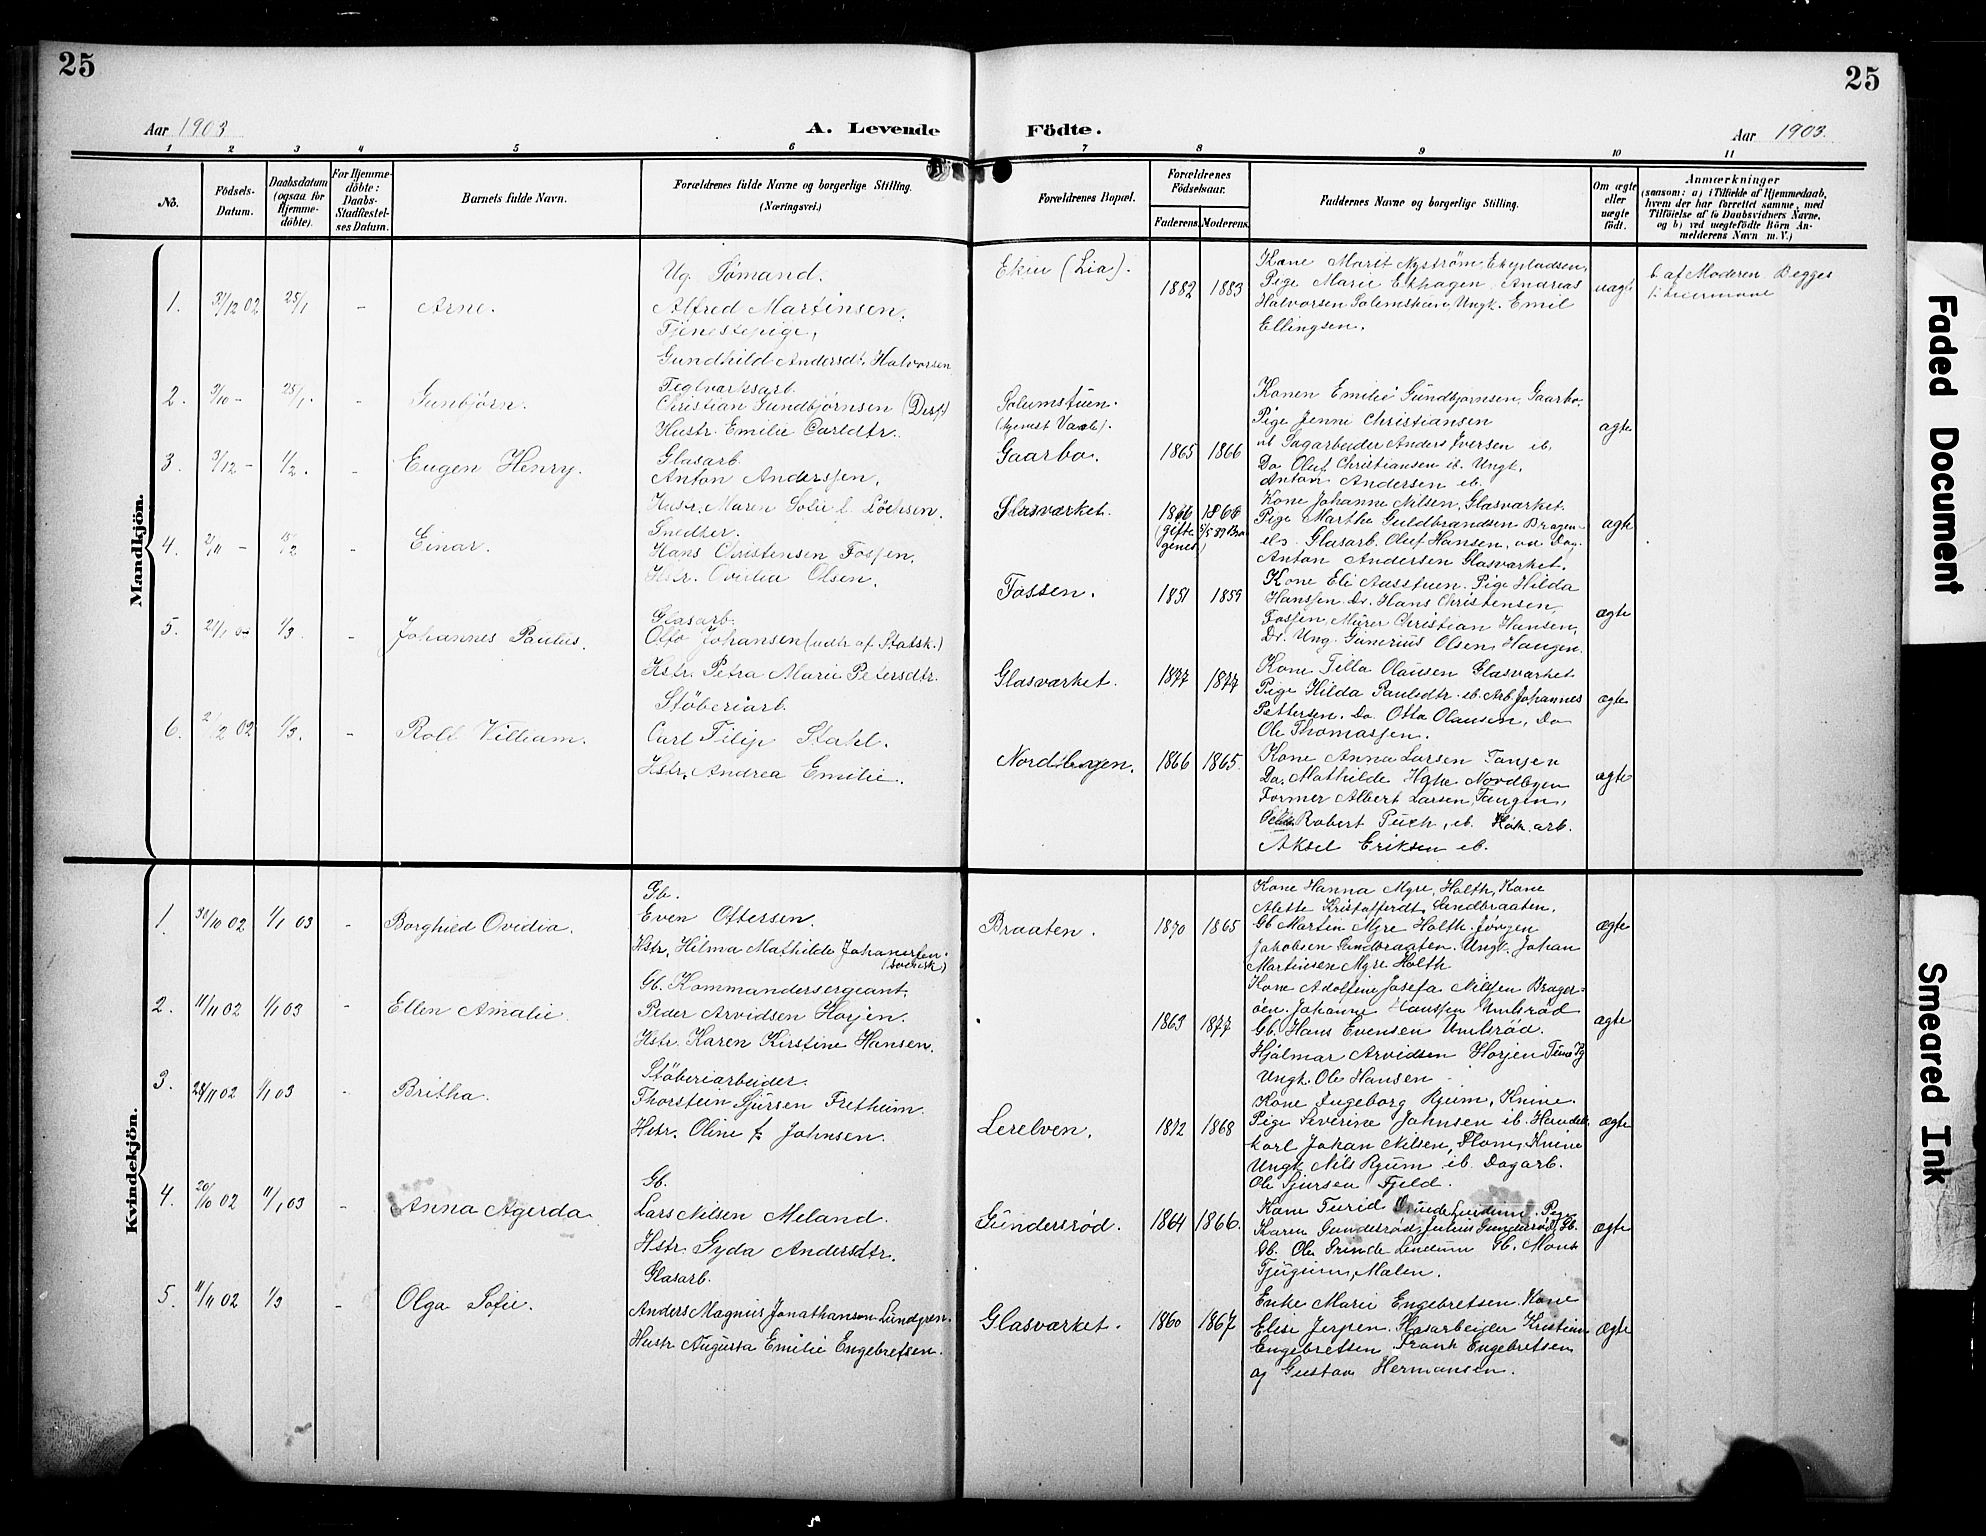 25
25
Aar 1903
A. Levende
Födte.
Aar 1903.
1 2 3 4 5 6 7 8 9 10 11
No.
Födsels-
Datum.
Daabsdatum
(ogsaa for
Hjemme-
döbte).
For Hjemme-
döbte:
Daabs-
Stadfæstel-
ses Datum.
Barnets fulde Navn.
Forældrenes fulde Navne og borgerlige Stilling.
(Næringsvei.)
Forældrenes Bopæl.
Forældrenes
Födselsaar.
Faderens. Moderens.
Faddernes Navne og borgerlige Stilling.
Om ægte
eller
uægte
födt.
Anmærkninger
(saasom: a) i Tilfælde af Hjemmedaab,
hvem der har forrettet samme, med
Tilföielse af to Daabsvidners Navne,
og b) ved uægtefödte Börn An-
melderens Navn m. V.)
Mandkjön.
1. 31/12 02 25/1 - Arne.
Ug. Sömand.
Alfred Martinsen,
Tjenestepige,
Gundhild Andersdt. Halvorsen
Ekin (Lia).
1882 1883
Kone Marit Nyström, Ekepladsen,
Pige Marie Ekhagen. Andreas
Halvorsen Solemstuen, Ungk. Emil
Ellingsen.
uægte
b. af Moderen. Begges
1. Leiermaal
2. 3/10 - 25/1. - Gunbjörn.
Teglværksarb.
Christian Gundbjörnsen
Hustr. Emilie Carldtr.
Solumstuen.
Gaarbo.
1865 1866
Konen Emilie Gundbjornsen, Gaarbo.
Pige Jenni Christiansen
ib Sagarbeider Anders Iversen ib.
Do Oluf Christiansen ib. Ungk.
Anton Andersen ib.
ægte
3. 3/12 - 1/2. - Eugen Henry.
Glasarb.
Anton Anderssen,
Hustr. Maren Sofie f. Löchsen.
Glasværket.
1866 1866
(Gifte
Kone Johanne Nilsen, Glasværket.
Pige Marthe Guldbrandsen Bragen-
Glasarb. Oluf Hansen,
Anton Andersen Glasværket.
ægte
4. 2/11 - 15/2 - Einar.
Snedker.
Hans Christensen Fossen,
Hstr. Ovidia Olsen.
Fossen.
1851 1859
Kone Eli Aasstuen. Pige Hilda
Hanssen. Dr. Hans Christensen,
Fossen, Mürer Christian Hansen,
Dr. Ung. Gunerius Olsen, Haugen.
ægte
5. 21/1 - 1/3. - Johannes Paulus.
Glasarb.
Otto Johansen (udtr af Statsk.)
Hstr. Petra Marie Petersdtr.
Glasværket.
1877 1877
Kone Tilla Olausen Glasværket
Pige Hilda Paulsdtr. ib. Arb. Johannes
Pettersen. Do. Otto Olausen, Do
Ole Thomassen.
ægte
6. 2/12 02 1/3. - Rolf Villiam.
Stöberiarb.
Carl Filip Stahl.
Hstr. Andrea Emilie.
Nordbygen.
1866 1865.
Kone Anna Larsen Tangen
Do. Mathilde Nordbyen
Former Albert Larsen, Tangen,
Robert Puch, ib. arb.
Aksel Eriksen ib.
ægte
Kvindekjön.
1. 30/10 02 1/1 03 - Borghild Ovidia.
Gb.
Even Ottersen.
Hstr. Hilma Mathilde Johannesen.
(svensk)
Braaten.
1870 1865
Kone Hanna Myre, Holth, Kone
Alette Kristofferdt. Sundbraaten.
Gb Martin Myre Holth. Jörgen
Jakobsen Sundbraaten. Ungk. Johan
Martinsen Myre Holth
ægte
2. 11/11 02 1/1 03 - Ellen Amalie.
Gb. Kommandersergeant.
Peder Arvidsen Horjen.
Hstr. Karen Kirstine Hansen.
1863 1877
Kone Adolfine Josefa Nilsen Brager-
öen. Johanne Hanssen Umlsröd
Gb. Hans Evensen Umlsröd.
Hjalmar Arvidsen Horjen
Ungk. Ole Hansen
ægte
3. 28/11 02 1/1 03 - Britha.
Stöberiarbeider.
Thorstein Sjursen Fretheim.
Hstr. Oline f. Johnsen.
Lerelven.
1872 1868
Kone Ingeborg Rjum, Knive.
Pige Severine Johnsen ib. Handelm.
Carl Johan Nilsen, Knive
Ungk. Nils Rjum ib. Dagarb.
Ole Sjursen Fjeld.
ægte
4. 20/10 02 11/1 03 - Anna Agerda
Gb.
Lars Nilsen Meland.
Hstr. Gyda Andersdtr.
Gundersröd.
1864 1866.
Kone Turid Grinde Lindum. Pige
Karen Gundersröd, Julius Gundersröd,
Gb. Ole Grinde Lindum Gb. Mons
Tjugum, Mælen.
ægte
5. 11/11 02 1/3 - Olga Sofie.
Glasarb.
Anders Magnus Jonathanson Lundgren.
Hustr Augusta Emilie Engebretsen.
Glasværket.
1860 1867
Enke Marie Engebretsen. Kone
Elise Jerpen. Glasarbeider Kristian
Engebretsen Frank Engebretsen
og Gustav Hermansen.
ægte
Faded Document
Smeared Ink